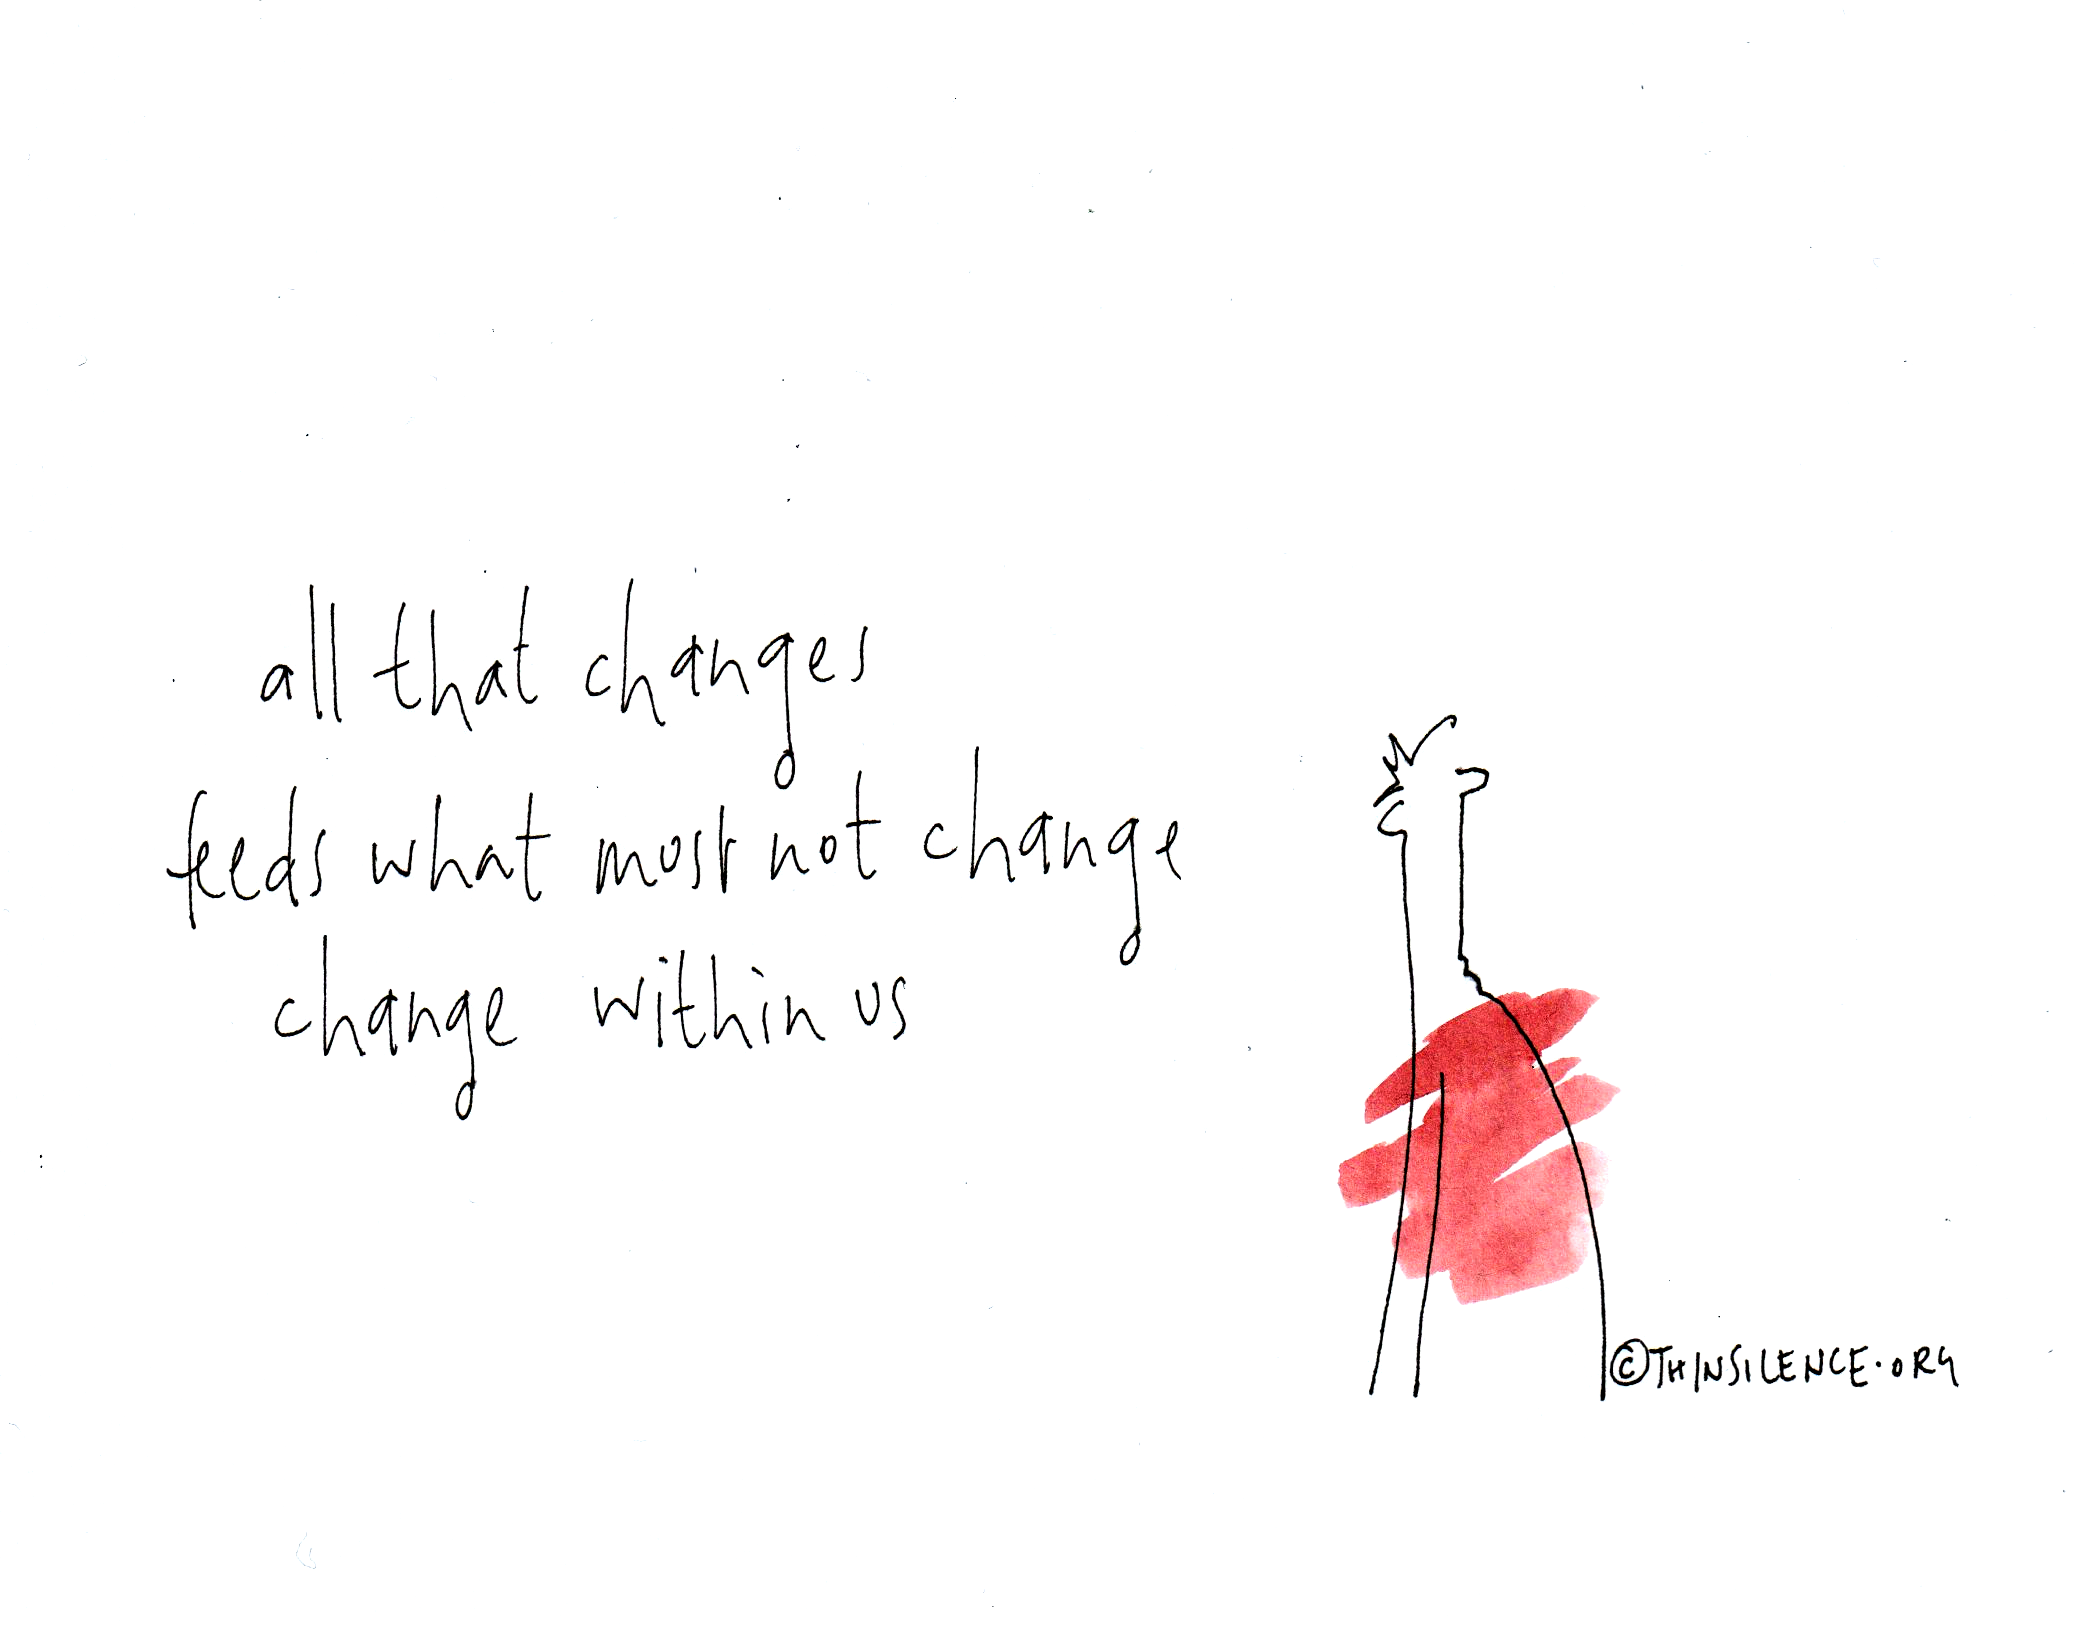 all that changes
feeds what must not change
change within us
©THINSILENCE.ORG